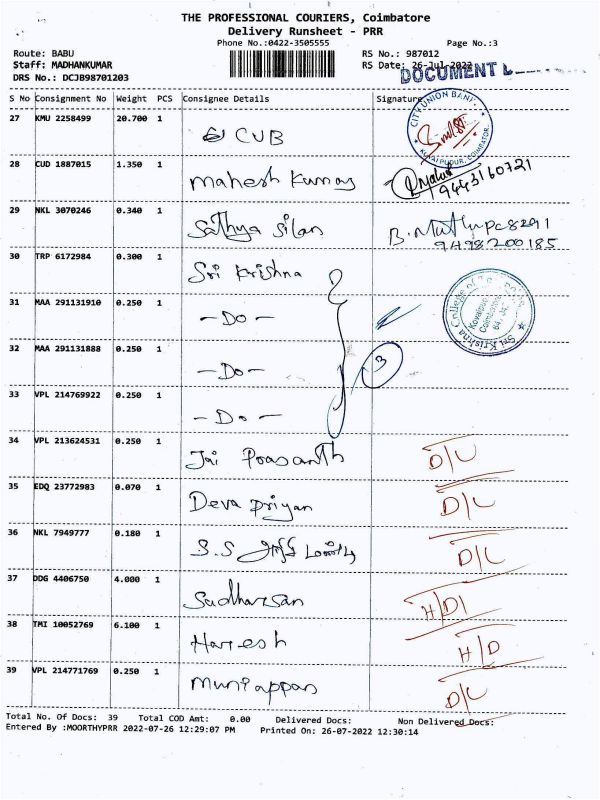 THE PROFESSIONAL COURIERS, Coimbatore
Delivery Runsheet - PRR
Phone No.:0422-3505555
Page No.:3
Route: BABU
RS No.: 987012
Staff: MADHANKUMAR
RS Date: 26-Jul-2022
DRS No.: DCJB98701203
DOCUMENT
S No Consignment No Weight PCS Consignee Details Signature
27 KMU 2258499 20.700 1 CUB
CITY UNION BANK
COIMBATORE
28 CUD 1887015 1.350 1 Mahesh Kumar
9443160721
29 NKL 3070246 0.340 1 Sathya Silan B. Muthu PC 8291
9498200185
30 TRP 6172984 0.300 1 Sri Krishna
Sri Krishna College of
Coimbatore
31 MAA 291131910 0.250 1 - Do -
32 MAA 291131888 0.250 1 - Do - 3
33 VPL 214769922 0.250 1 - Do -
34 VPL 213624531 0.250 1 Jai Prasanth D/L
35 EDQ 23772983 0.070 1 Deva Priyan D/L
36 NKL 7949777 0.180 1 S.S D/L
37 DDG 4406750 4.000 1 Sudharsan H/D
38 TMI 10052769 6.100 1 Haresh H/D
39 VPL 214771769 0.250 1 Muniappan D/L
Total No. Of Docs: 39 Total COD Amt: 0.00 Delivered Docs: Non Delivered Docs:
Entered By :MOORTHYPRR 2022-07-26 12:29:07 PM Printed On: 26-07-2022 12:30:14